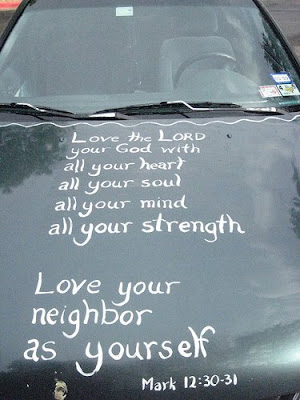 Love the LORD
your God with
all your heart
all your soul
all your mind
all your strength
Love your
neighbor
as yourself
Mark 12:30-31